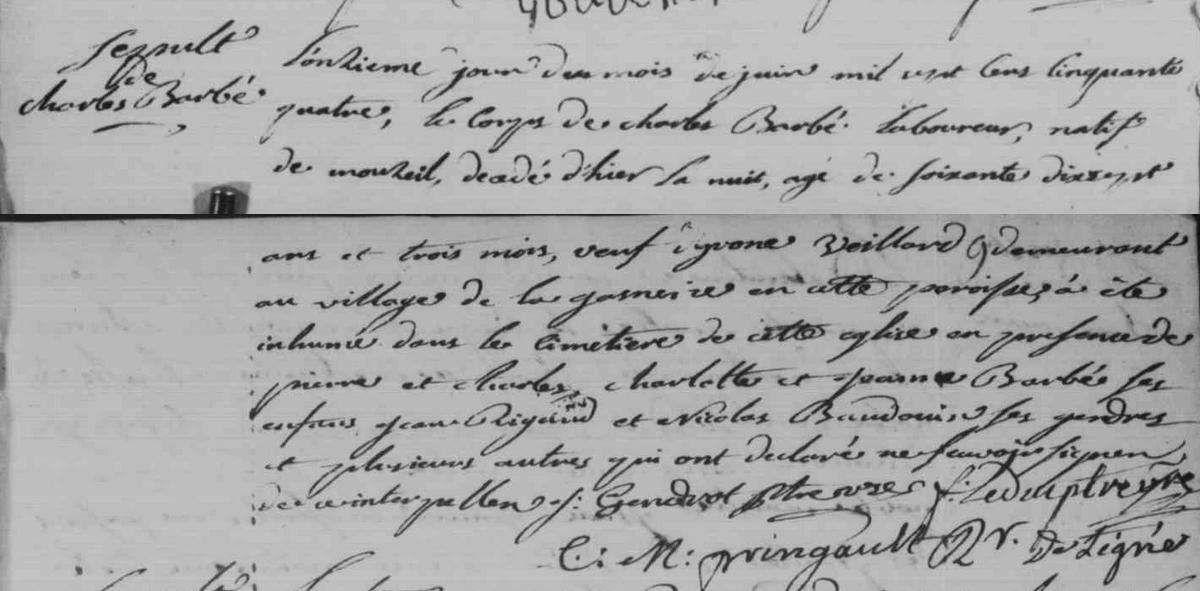 Sepult
de
charles Barbé
L'onzieme jour du mois de juin mil sept cens cinquante
quatre, le corps de charles Barbé laboureur, natif
de mouzeil, decedé d'hier la nuit, agé de soixante dix sept
ans et trois mois, veuf d'yvone Veillard demeurant
au village de la gasneire en cette paroisse, a été
inhumé dans le cimetiere de cette eglise en presence de
pierre et charles, charlotte et jeanne Barbé ses
enfans jean Rigaud et Nicolas Baudouin ses gendres
et plusieurs autres qui ont declaré ne scavoir signer
de ce interpellen
C: M: pringault Rr. De Ligné